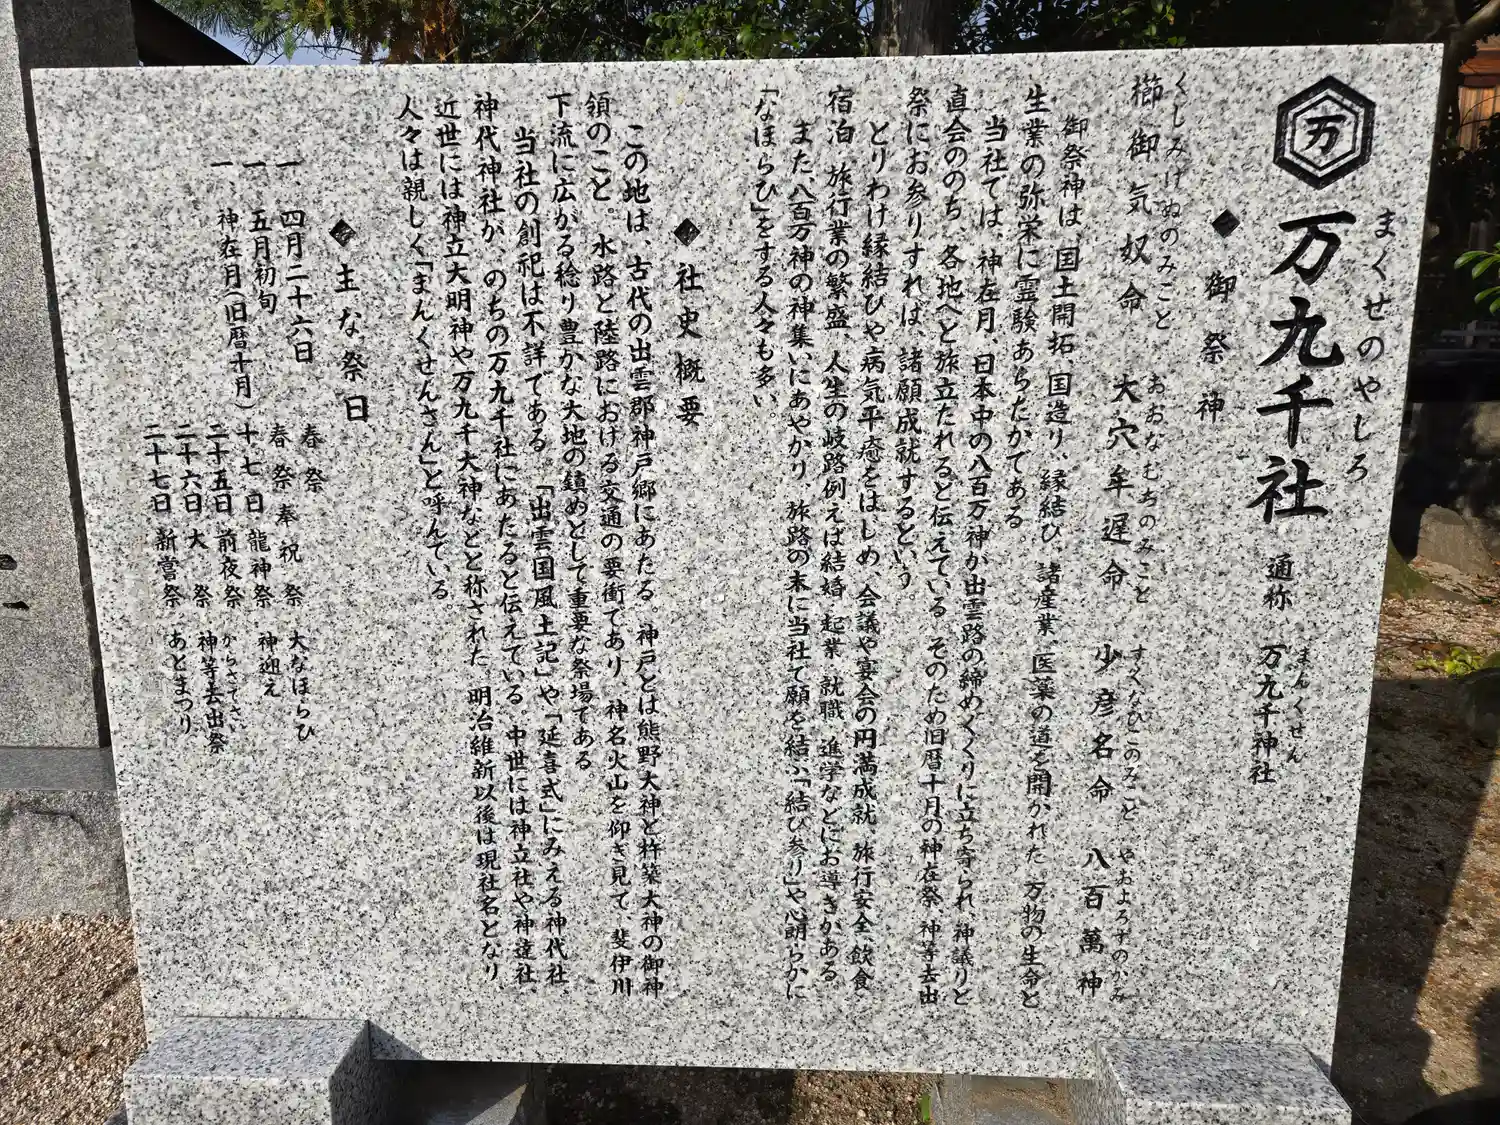 万
まくせのやしろ
万九千社 通称 万九千神社
まんくせん
◆御祭神
くしみけぬのみこと おおなむちのみこと すくなひこのみこと やおよろずのかみ
櫛御気奴命 大穴牟遅命 少彦名命 八百萬神
御祭神は、国土開拓、国造り、縁結び、諸産業、医薬の道を開かれた、万物の生命と
生業の弥栄に霊験あらたかである。
当社では、神在月、日本中の八百万神が出雲路の締めくくりに立ち寄られ、神議りと
直会ののち、各地へと旅立たれると伝えている。そのため旧暦十月の神在祭、神等去出
祭にお参りすれば、諸願成就するという。
とりわけ縁結びや病気平癒をはじめ、会議や宴会の円満成就、旅行安全、飲食
宿泊、旅行業の繁盛、人生の岐路例えば結婚、起業、就職、進学などにお導きがある。
また、八百万神の神集いにあやかり、旅路の末に当社で願を結ぶ「結び参り」や心朗らかに
「なほらひ」をする人々も多い。
◆社史概要
この地は、古代の出雲郡神戸郷にあたる。神戸とは熊野大神と杵築大神の御神
領のこと。水路と陸路における交通の要衝であり、神名火山を仰ぎ見て、斐伊川
下流に広がる稔り豊かな大地の鎮めとして重要な祭場である。
当社の創祀は不詳である。「出雲国風土記」や「延喜式」にみえる神代社、
神代神社が、のちの万九千社にあたると伝えている。中世には神立社や神達社、
近世には神立大明神や万九千大神などと称された。明治維新以後は現社名となり、
人々は親しく「まんくせんさん」と呼んでいる。
◆主な祭日
一、四月二十六日 春祭
一、五月初旬 春祭奉祝祭 大なほらひ
一、神在月(旧暦十月) 十七日 龍神祭 神迎え
からさでさい
二十五日 前夜祭
二十六日 大祭 神等去出祭
二十七日 新嘗祭 あとまつり